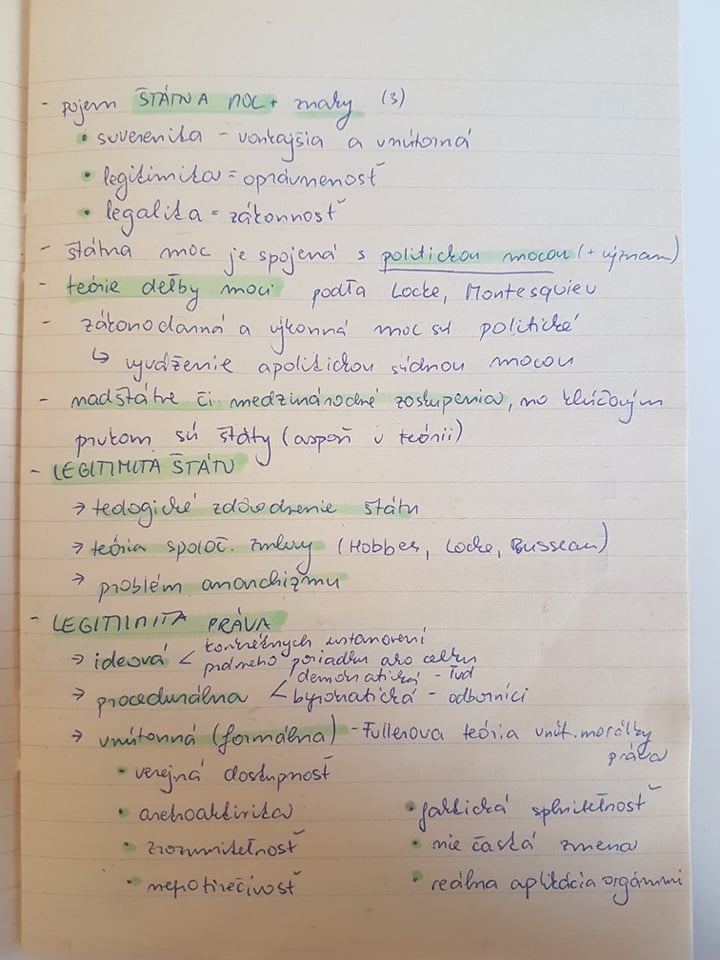 - pojem ŠTÁTNA MOC + znaky (3)
• suverenita - vonkajšia a vnútorná
• legitimita = oprávnenosť
• legalita = zákonnosť
- štátna moc je spojená s politickou mocou (+ význam)
- teórie deľby moci podľa Locke, Montesquieu
- zákonodarná a výkonná moc sú politické
↳ vyváženie apolitickou súdnou mocou
- nadštátne či medzinárodné zoskupenia, no kľúčovým
prvkom sú štáty (aspoň v teórii)
- LEGITIMITA ŠTÁTU
→ teologické zdôvodnenie štátu
→ teória spoloč. zmluvy (Hobbes, Locke, Russeau)
→ problém anarchizmu
- LEGITIMITA PRÁVA
→ ideová < konkrétnych ustanovení
právneho poriadku ako celku
→ procedurálna < demokratická - ľud
byrokratická - odborníci
→ vnútorná (formálna) - Fullerova teória vnút. morálky
práva
• verejná dostupnosť
• aretroaktivita
• zrozumiteľnosť
• neprotirečivosť
• faktická splniteľnosť
• nie častá zmena
• reálna aplikácia orgánmi